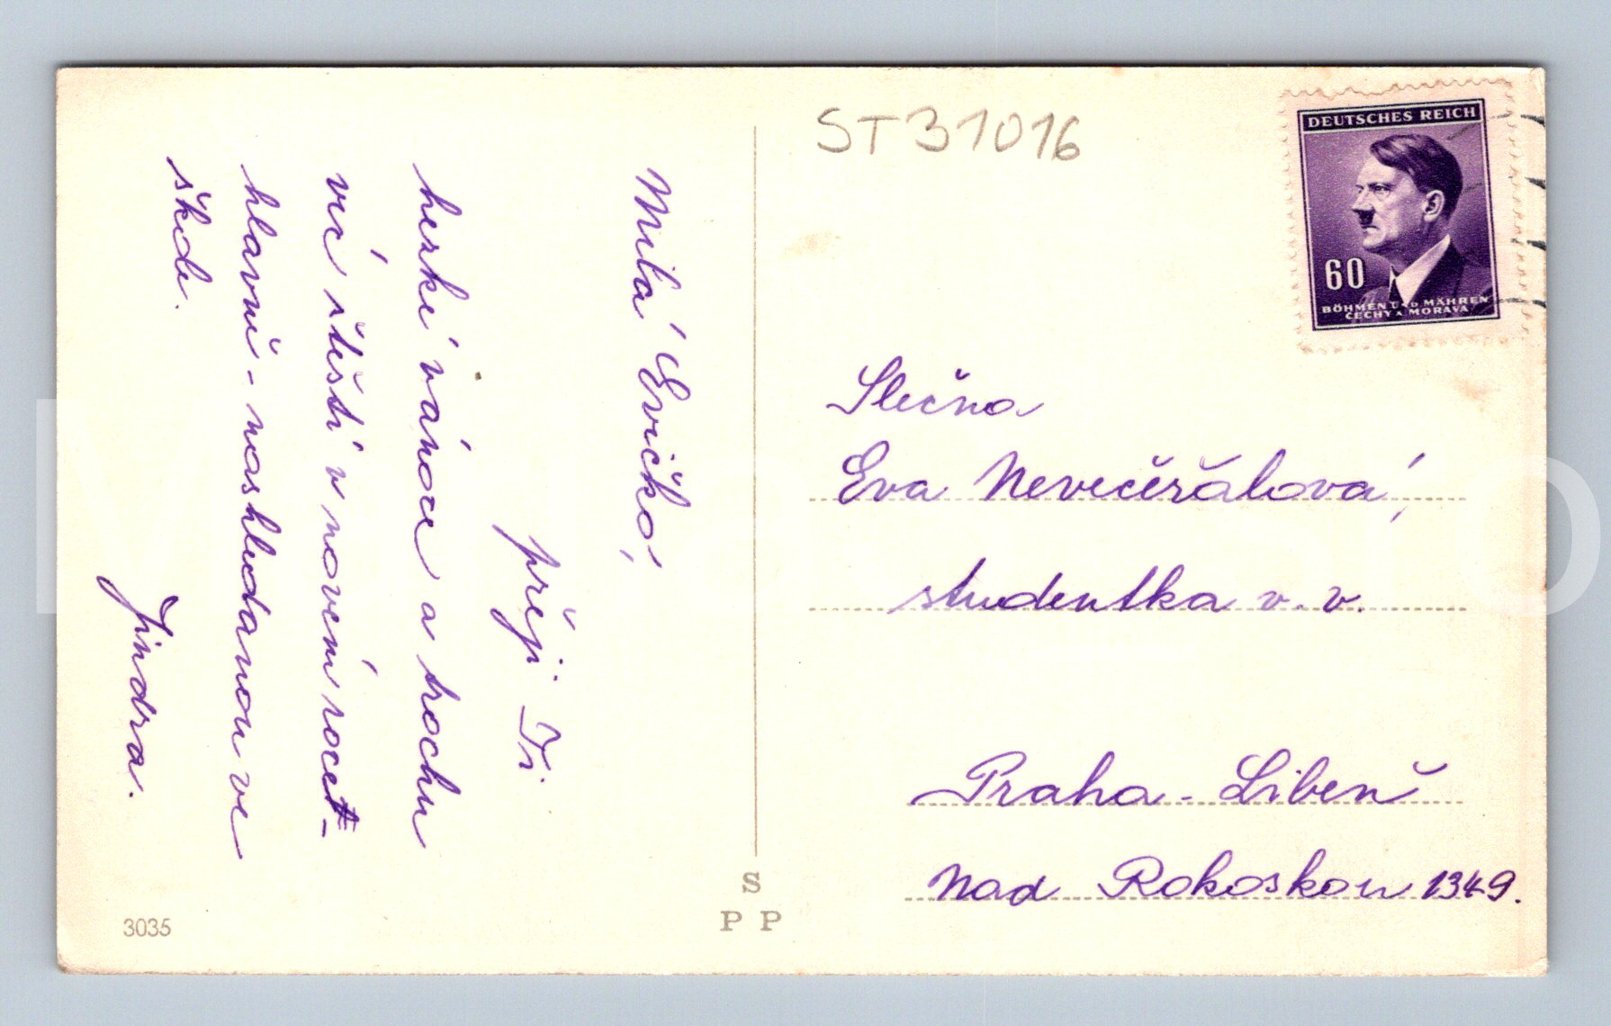 Milá Evičko,
přeji Ti
hezké vánoce a trochu
víc štěstí v novém roce -
hlavně - nashledanou ve
škole.
Jindra.
ST31016
DEUTSCHES REICH
60
BÖHMEN U-D MÄHREN
ČECHY A MORAVA
Slečna
Eva Nevečeřalová,
studentka v. v.
Praha - Libeň
Nad Rokoskou 1349.
S
P P
3035